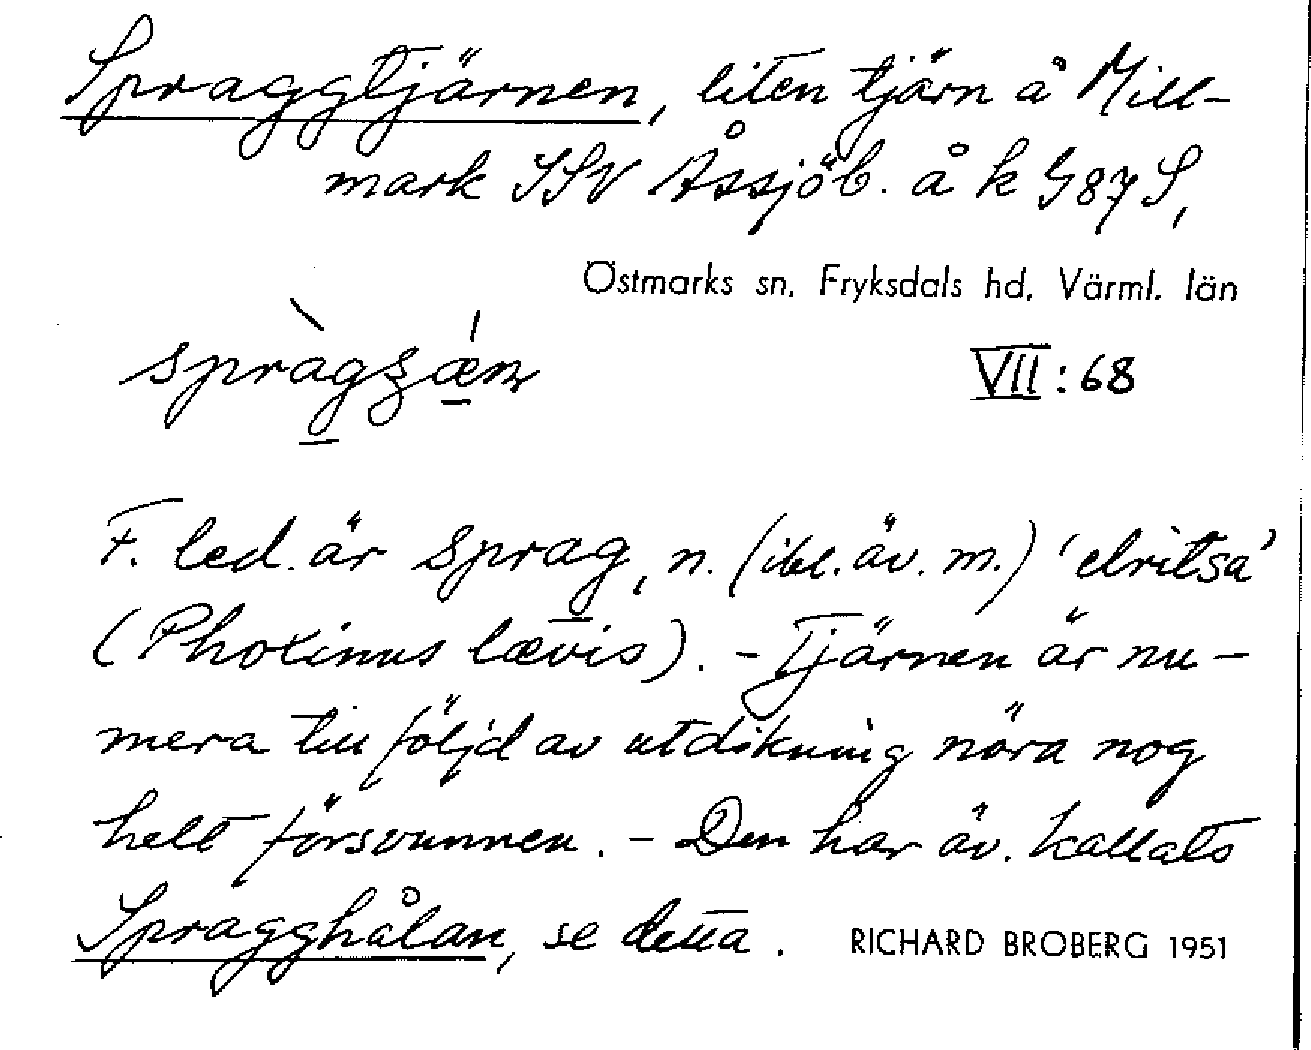 Spraggtjärnen, liten tjärn å Mill-
mark SSV Åssjöb. å k G 87 S,
Östmarks sn, Fryksdals hd, Värml. län
VII : 68
F. led. är sprag, n. (ibl. äv. m.) 'elritsa'
(Phoxinus lævis). - Tjärnen är nu-
mera till följd av utdikning nära nog
helt försvunnen. - Den har äv. kallats
Spragghålan, se detta. RICHARD BROBERG 1951